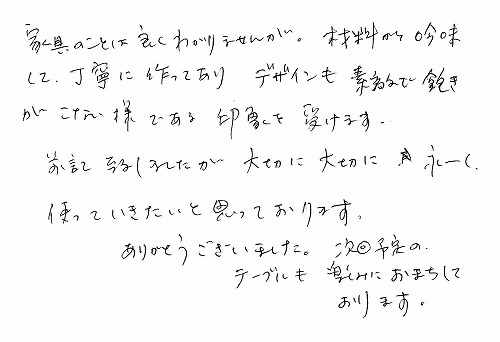 家具のことは良くわかりませんが。材料から吟味
して、丁寧に作ってあり デザインも素敵で飽き
がこない様である印象を受けます。
前記致しましたが大切に大切に 永ーく
使っていきたいと思っております。
ありがとうございました。次回予定の
テーブルも楽しみにおまちして
おります。